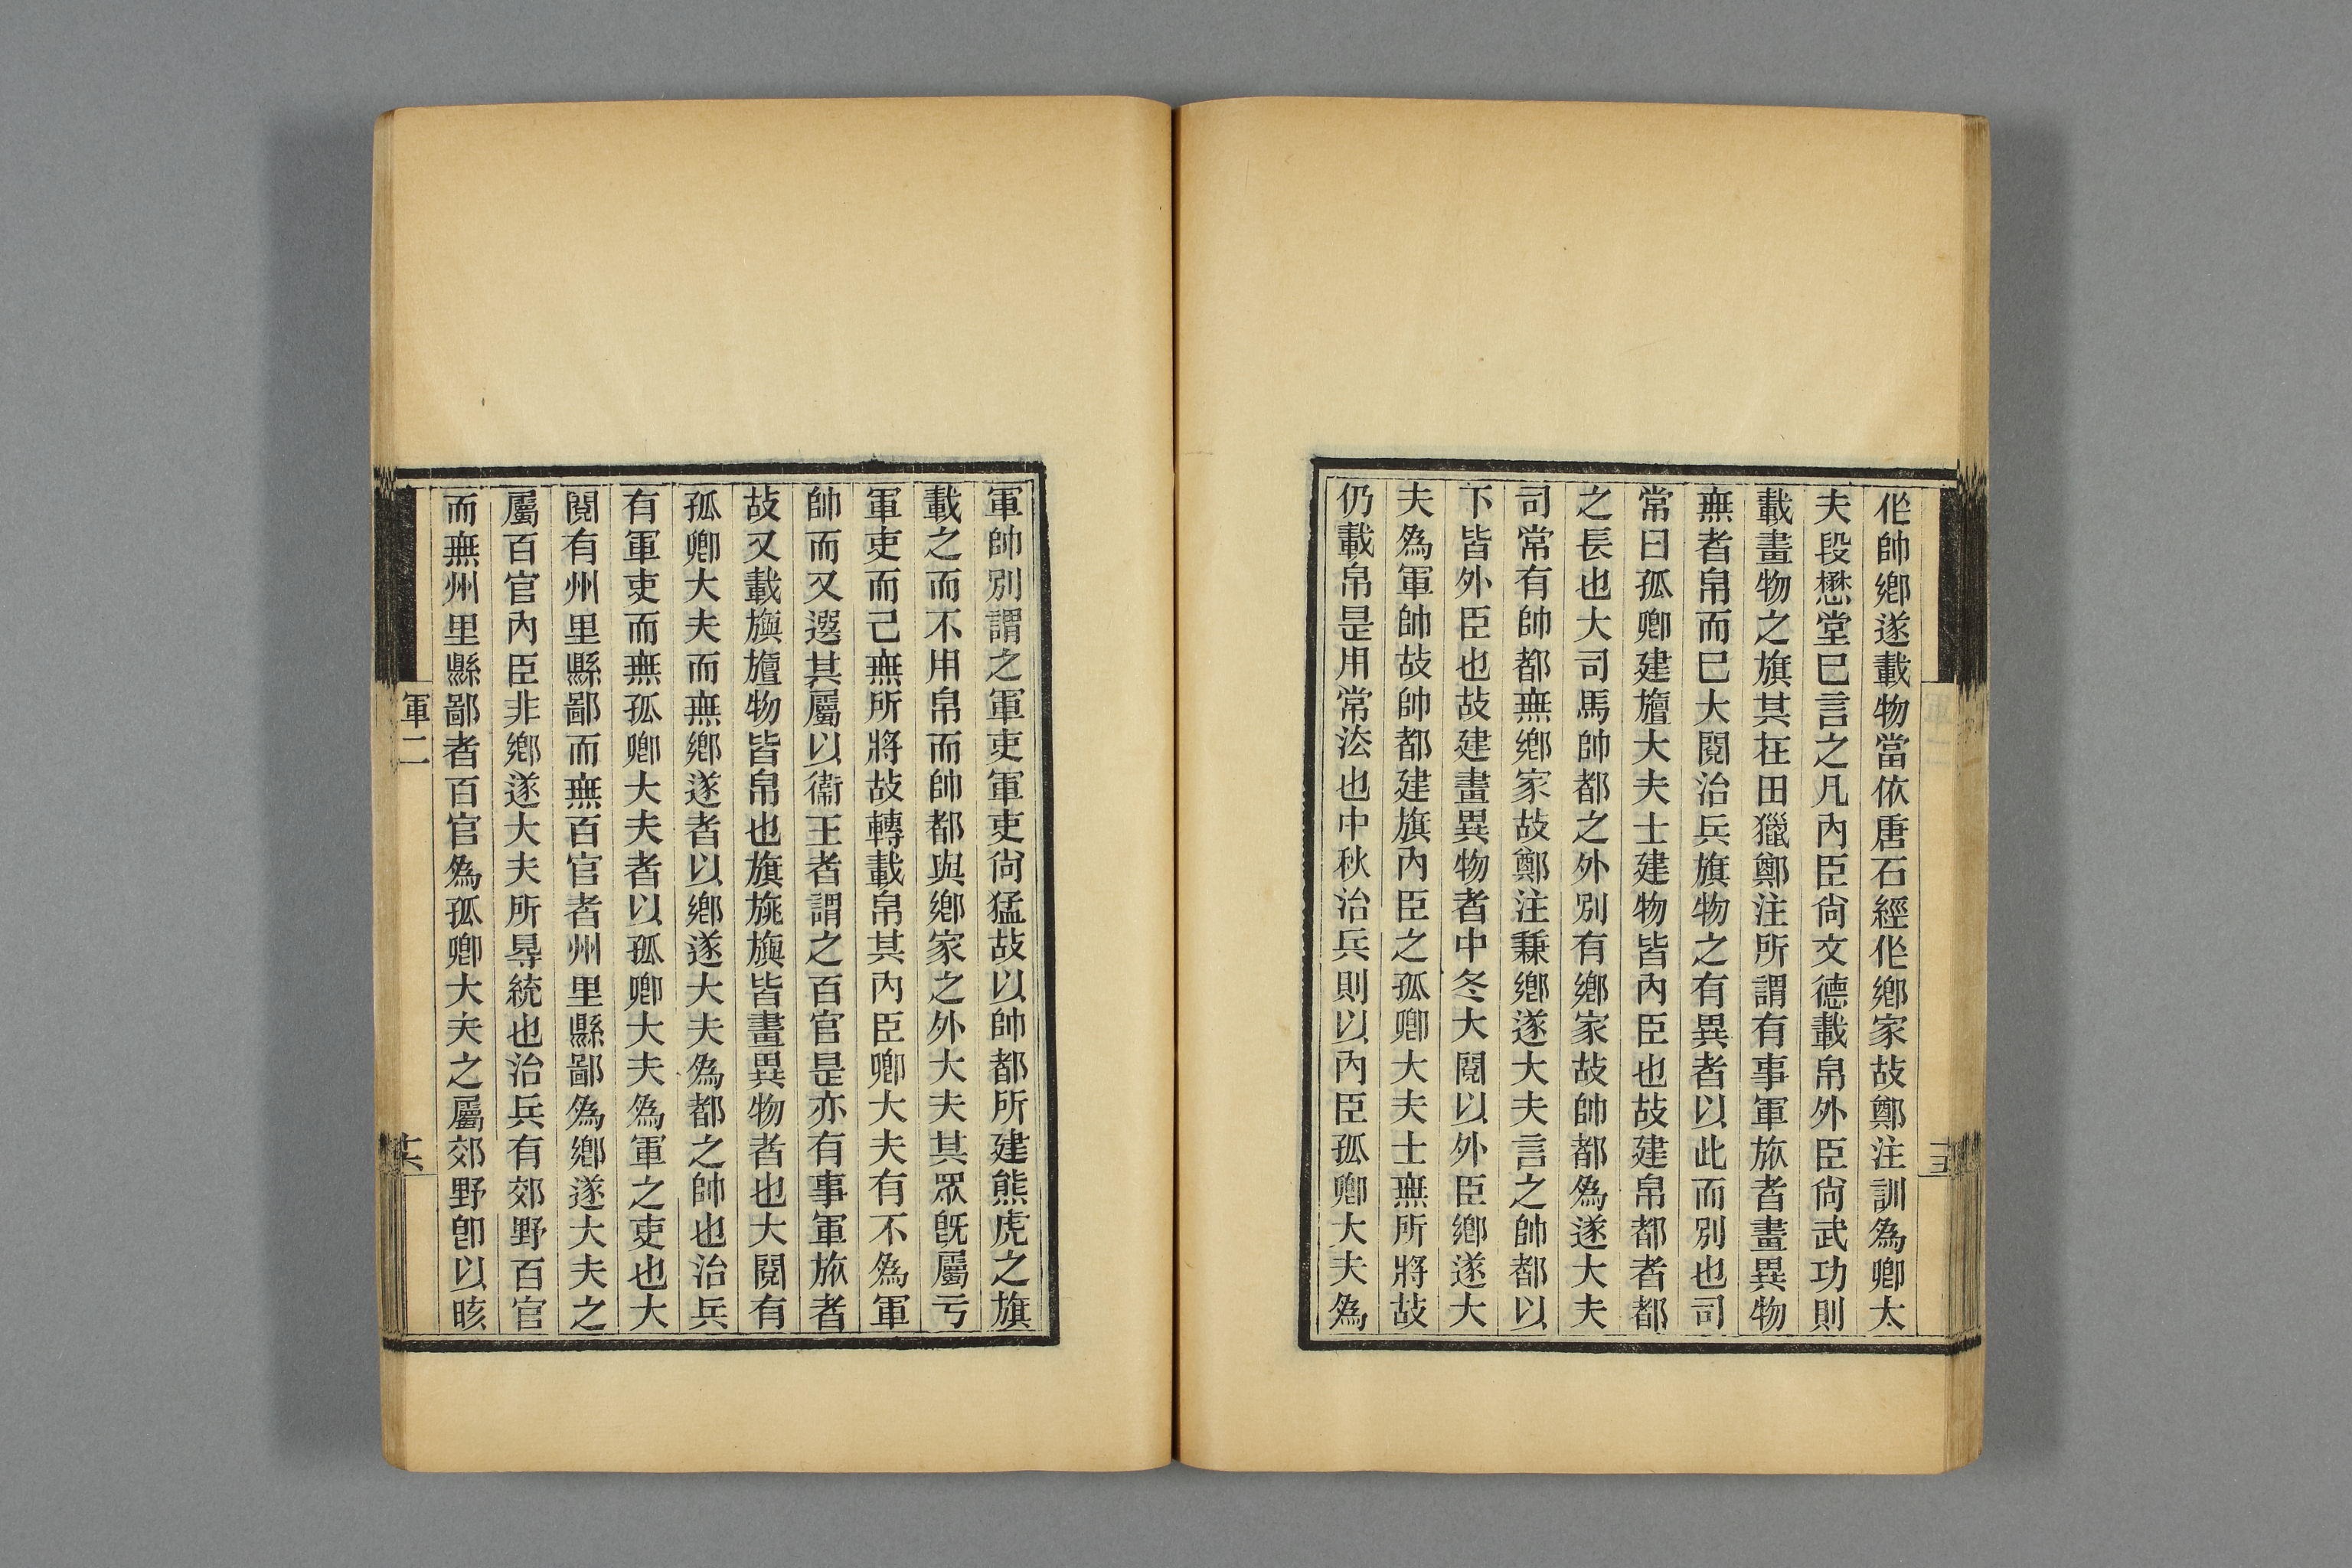 仛帥鄉遂載物當依唐石經仛鄉家故鄭注訓為卿大
夫段懋堂巳言之凡內臣尙文德載帛外臣尙武功則
載畫物之旗其在田獵鄭注所謂有事軍旅者畫異物
無者帛而巳大閱治兵旗物之有異者以此而別也司
常曰孤卿建旜大夫士建物皆內臣也故建帛都者都
之長也大司馬帥都之外別有鄉家故帥都為遂大夫
司常有帥都無鄉家故鄭注兼鄉遂大夫言之帥都以
下皆外臣也故建畫異物者中冬大閱以外臣鄉遂大
夫為軍帥故帥都建旗內臣之孤卿大夫士無所將故
仍載帛是用常法也中秋治兵則以內臣孤卿大夫為
軍帥別謂之軍吏軍吏尙猛故以帥都所建熊虎之旗
載之而不用帛而帥都與鄉家之外大夫其眾旣屬亏
軍吏而己無所將故轉載帛其內臣卿大夫有不為軍
帥而又選其屬以衞王者謂之百官是亦有事軍旅者
故又載旟旜物皆帛也旗旐旟皆畫異物者也大閱有
孤卿大夫而無鄉遂者以鄉遂大夫為都之帥也治兵
有軍吏而無孤卿大夫者以孤卿大夫為軍之吏也大
閱有州里縣鄙而無百官者州里縣鄙為鄉遂大夫之
屬百官內臣非鄉遂大夫所㝵統也治兵有郊野百官
而無州里縣鄙者百官為孤卿大夫之屬郊野卽以晐
軍二